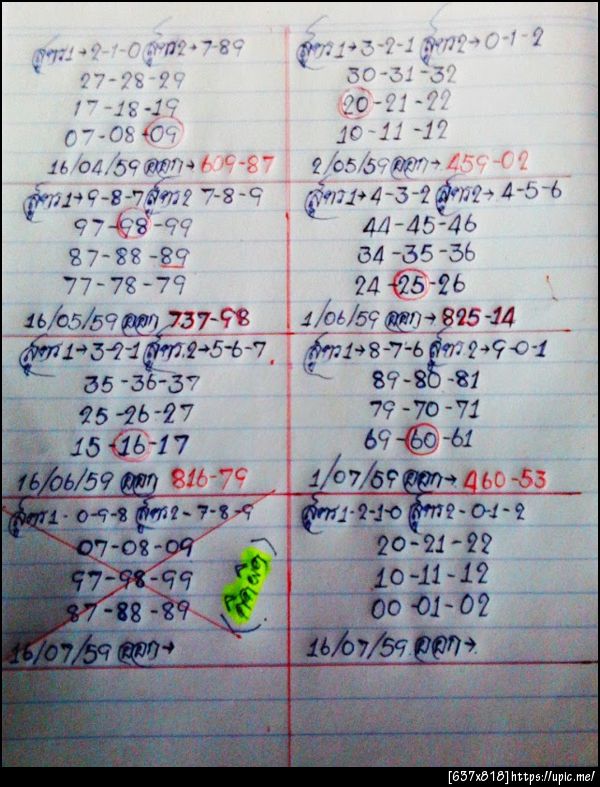 สูตร1→2-1-0 สูตร2→7-89
27-28-29
17-18-19
07-08-09
16/04/59 ออก→609-87
สูตร1→3-2-1 สูตร2→0-1-2
30-31-32
20-21-22
10-11-12
2/05/59 ออก→459-02
สูตร1→9-8-7 สูตร2 7-8-9
97-98-99
87-88-89
77-78-79
16/05/59 ออก 737-98
สูตร1→4-3-2 สูตร2→4-5-6
44-45-46
34-35-36
24-25-26
1/06/59 ออก→825-14
สูตร1→3-2-1 สูตร.2→5-6-7
35-36-37
25-26-27
15-16-17
16/06/59 ออก 816-79
สูตร1→8-7-6 สูตร.2→9-0-1
89-80-81
79-70-71
69-60-61
1/07/59 ออก→460-53
สูตร1-0-9-8 สูตร2-7-8-9
07-08-09
97-98-99
87-88-89
16/07/59 ออก→
สูตร1-2-1-0 สูตร2-0-1-2
20-21-22
10-11-12
00-01-02
16/07/59 ออก→.
[637x818]https://upic.me/